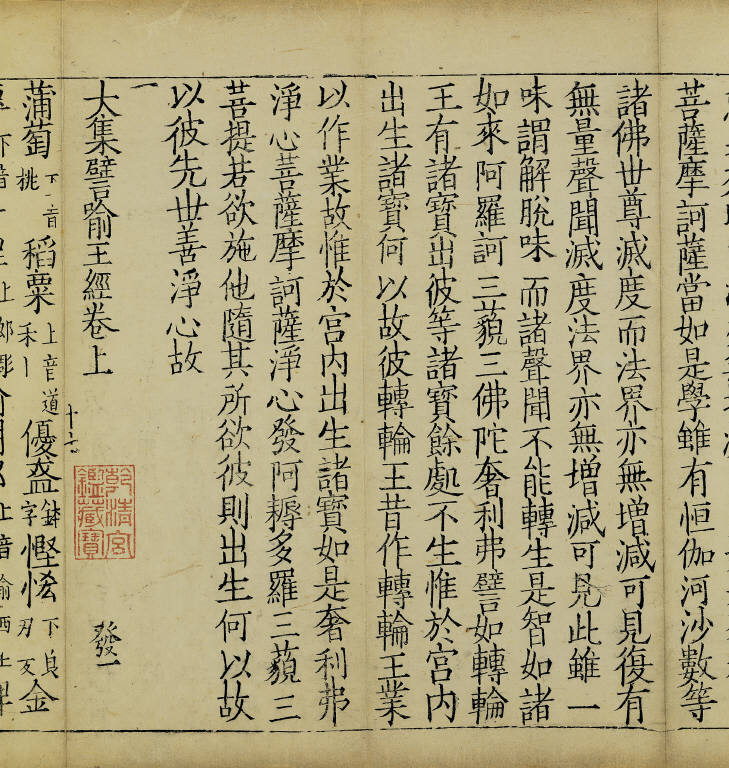 菩薩摩訶薩當如是學雖有恒伽河沙數等
諸佛世尊滅度而法界亦無增減可見復有
無量聲聞滅度法界亦無增減可見此雖一
味謂解脫味而諸聲聞不能轉生是智如諸
如來阿羅訶三藐三佛陀奢利弗譬如轉輪
王有諸寶出彼等諸寶餘處不生惟於宮內
出生諸寶何以故彼轉輪王昔作轉輪王業
以作業故惟於宮內出生諸寶如是奢利弗
淨心菩薩摩訶薩淨心發阿耨多羅三藐三
菩提若欲施他隨其所欲彼則出生何以故
以彼先世善淨心故
一
大集譬喻王經卷上
發一
乾清宮鑑藏寶
蒲萄 下音桃 稻粟 上音道 優盋 鉢字 慳悋 下良刃反 金